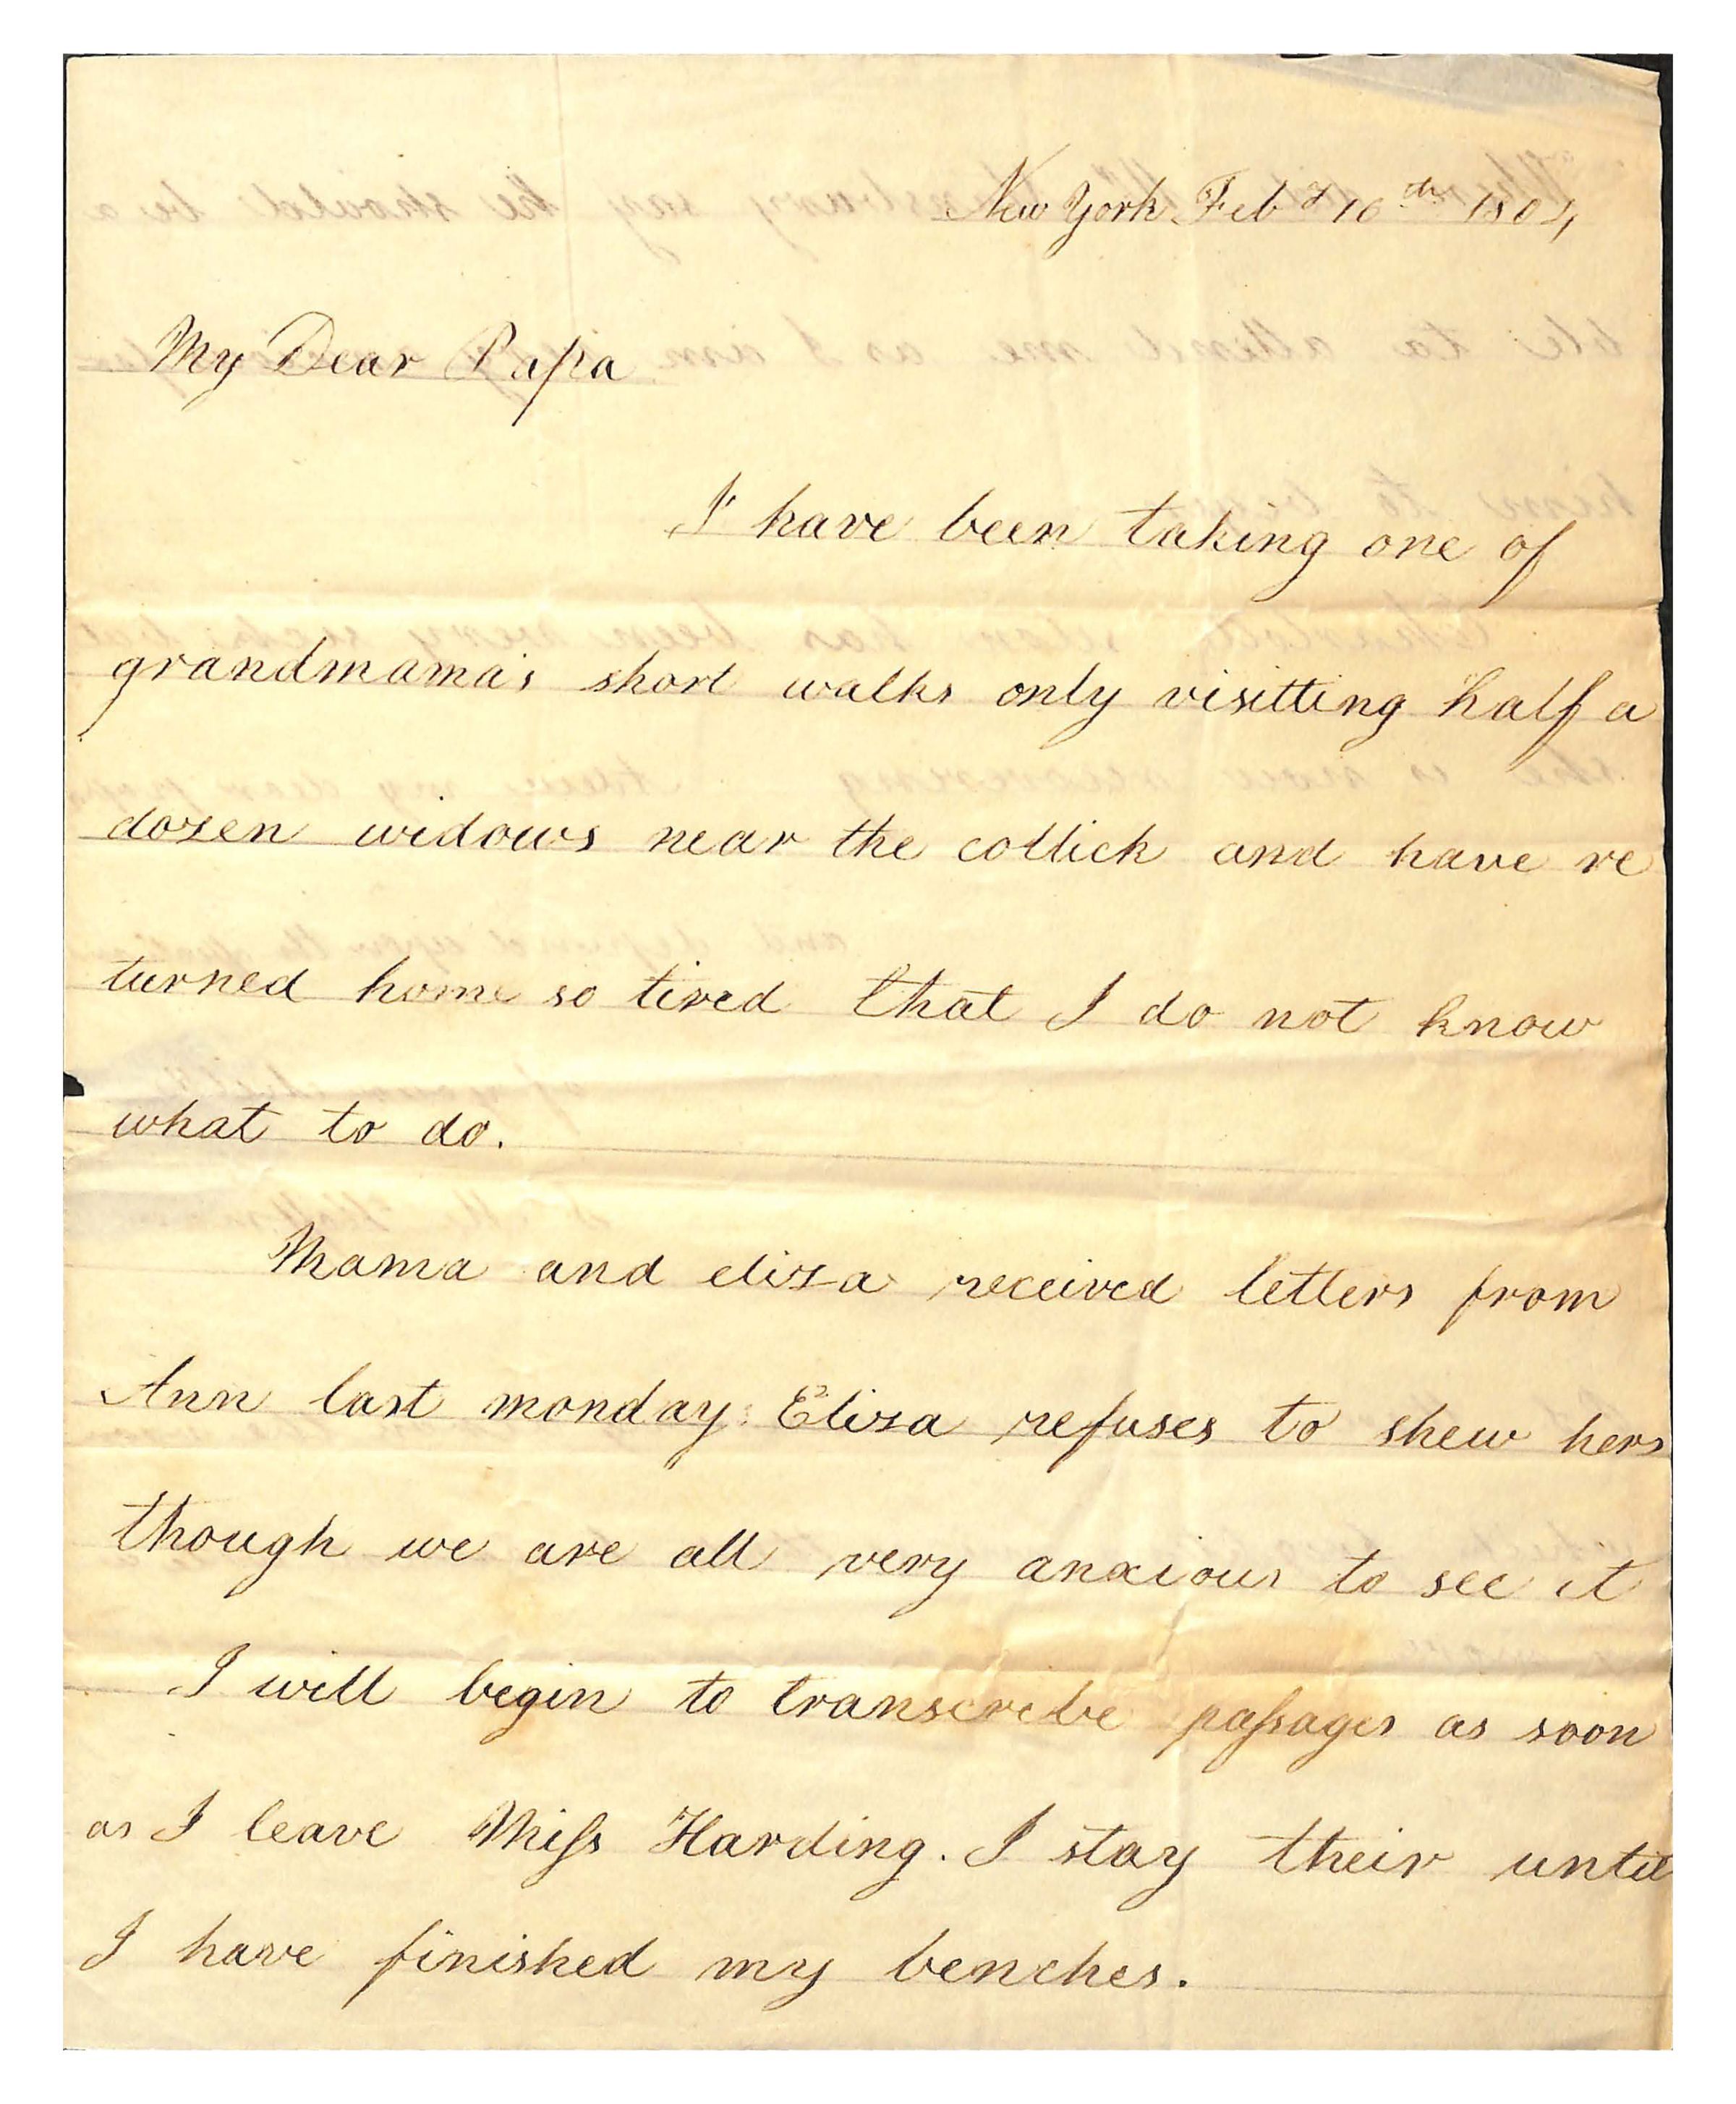 New York Feb y 10th 1804
My Dear Papa
I have been taking one of
grandmama's short walks only visitting half a
dozen widows near the collick and have re
turned home so tired that I do not know
what to do.
Mama and eliza received letters from
Ann last monday: Eliza refuses to shew hers
though we are all very anxious to see it
I will begin to transcribe paſsages as soon
as I leave Miſs Harding. I stay their until
I have finished my benches.